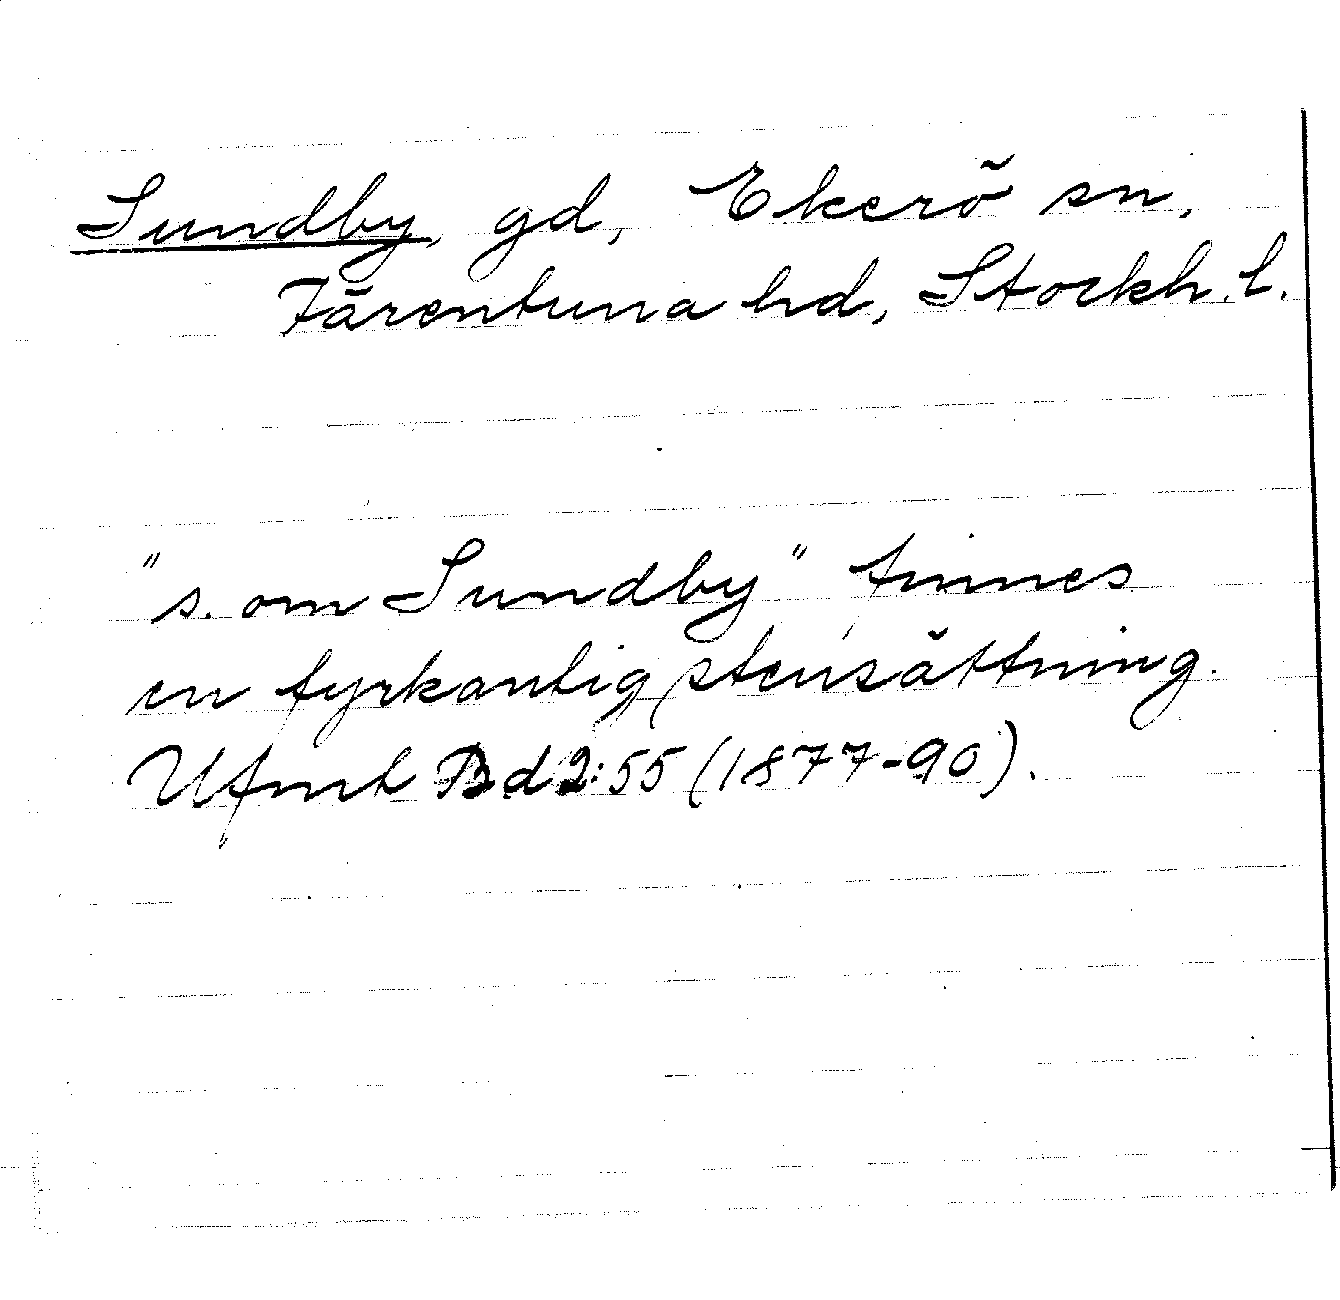 Sundby, gd, Ekerö sn,
Färentuna hd, Stockh. l.
"s. om Sundby" finnes
en fyrkantig stensättning.
Ufmt Bd 2:55 (1877-90).